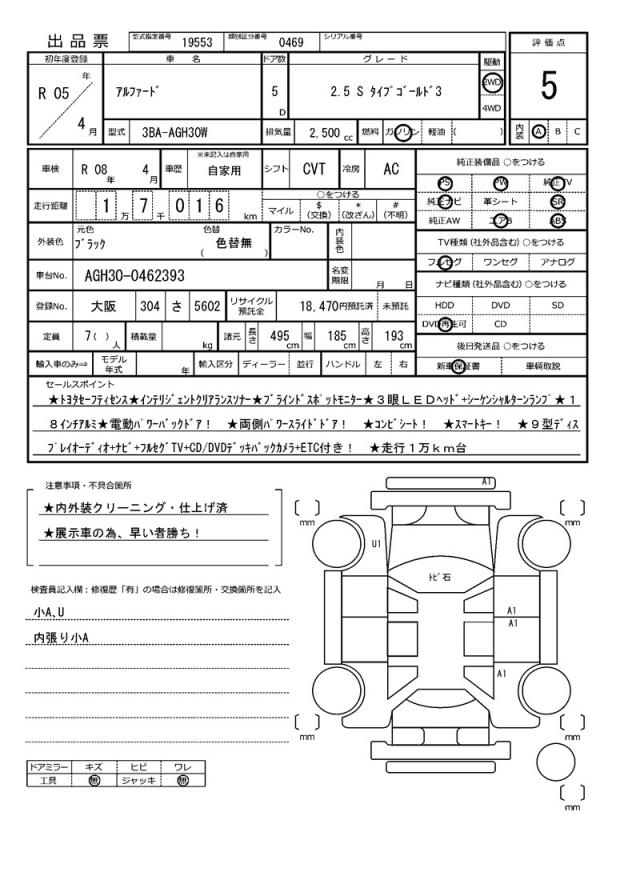 出品票 型式指定番号 19553 類別区分番号 0469 シリアル番号
評価点
初年度登録 車名 ドア数 グレード 駆動
R 05 年 4 月 アルファード 5 D 2.5 S タイプゴールド3 2WD 4WD
5
型式 3BA-AGH30W 排気量 2,500 cc 燃料 ガソリン 軽油 ( )
内装 A B C
車検 R 08 年 4 月 車歴 ※未記入は自家用 自家用 シフト CVT 冷房 AC
純正装備品 ○をつける
PS PW 純正TV
走行距離 1 万 7 千 0 1 6 km ○をつける マイル $ (交換) * (改ざん) # (不明)
純正ナビ 革シート SR
純正AW エアB ABS
外装色 元色 ブラック 色替 色替無 ( ) カラーNo. 内装色
TV種類 (社外品含む) ○をつける
フルセグ ワンセグ アナログ
車台No. AGH30-0462393 名変期限 月 日
ナビ種類 (社外品含む) ○をつける
登録No. 大阪 304 さ 5602 リサイクル預託金 18,470円預託済 未預託
HDD DVD SD
DVD再生可 CD
定員 7( ) 人 積載量 kg 諸元 長さ 495 cm 幅 185 cm 高さ 193 cm
後日発送品 ○をつける
輸入車のみ⇒ モデル年式 年 輸入区分 ディーラー 並行 ハンドル 左 右
新車保証書 車輌取説
セールスポイント
★トヨタセーフティセンス★インテリジェントクリアランスソナー★ブラインドスポットモニター★3眼LEDヘッド+シーケンシャルターンランプ★1
8インチアルミ★電動パワーバックドア! ★両側パワースライドドア! ★コンビシート! ★スマートキー! ★9型ディス
プレイオーディオ+ナビ+フルセグTV+CD/DVDデッキバックカメラ+ETC付き! ★走行1万km台
注意事項・不具合箇所
★内外装クリーニング・仕上げ済
★展示車の為、早い者勝ち!
検査員記入欄:修復歴「有」の場合は修復箇所・交換箇所を記入
小A,U
内張り小A
A1
mm mm
U1
トビ石
A1
A1
A1
mm mm
mm
ドアミラー キズ ヒビ ワレ
工具 無 ジャッキ 無